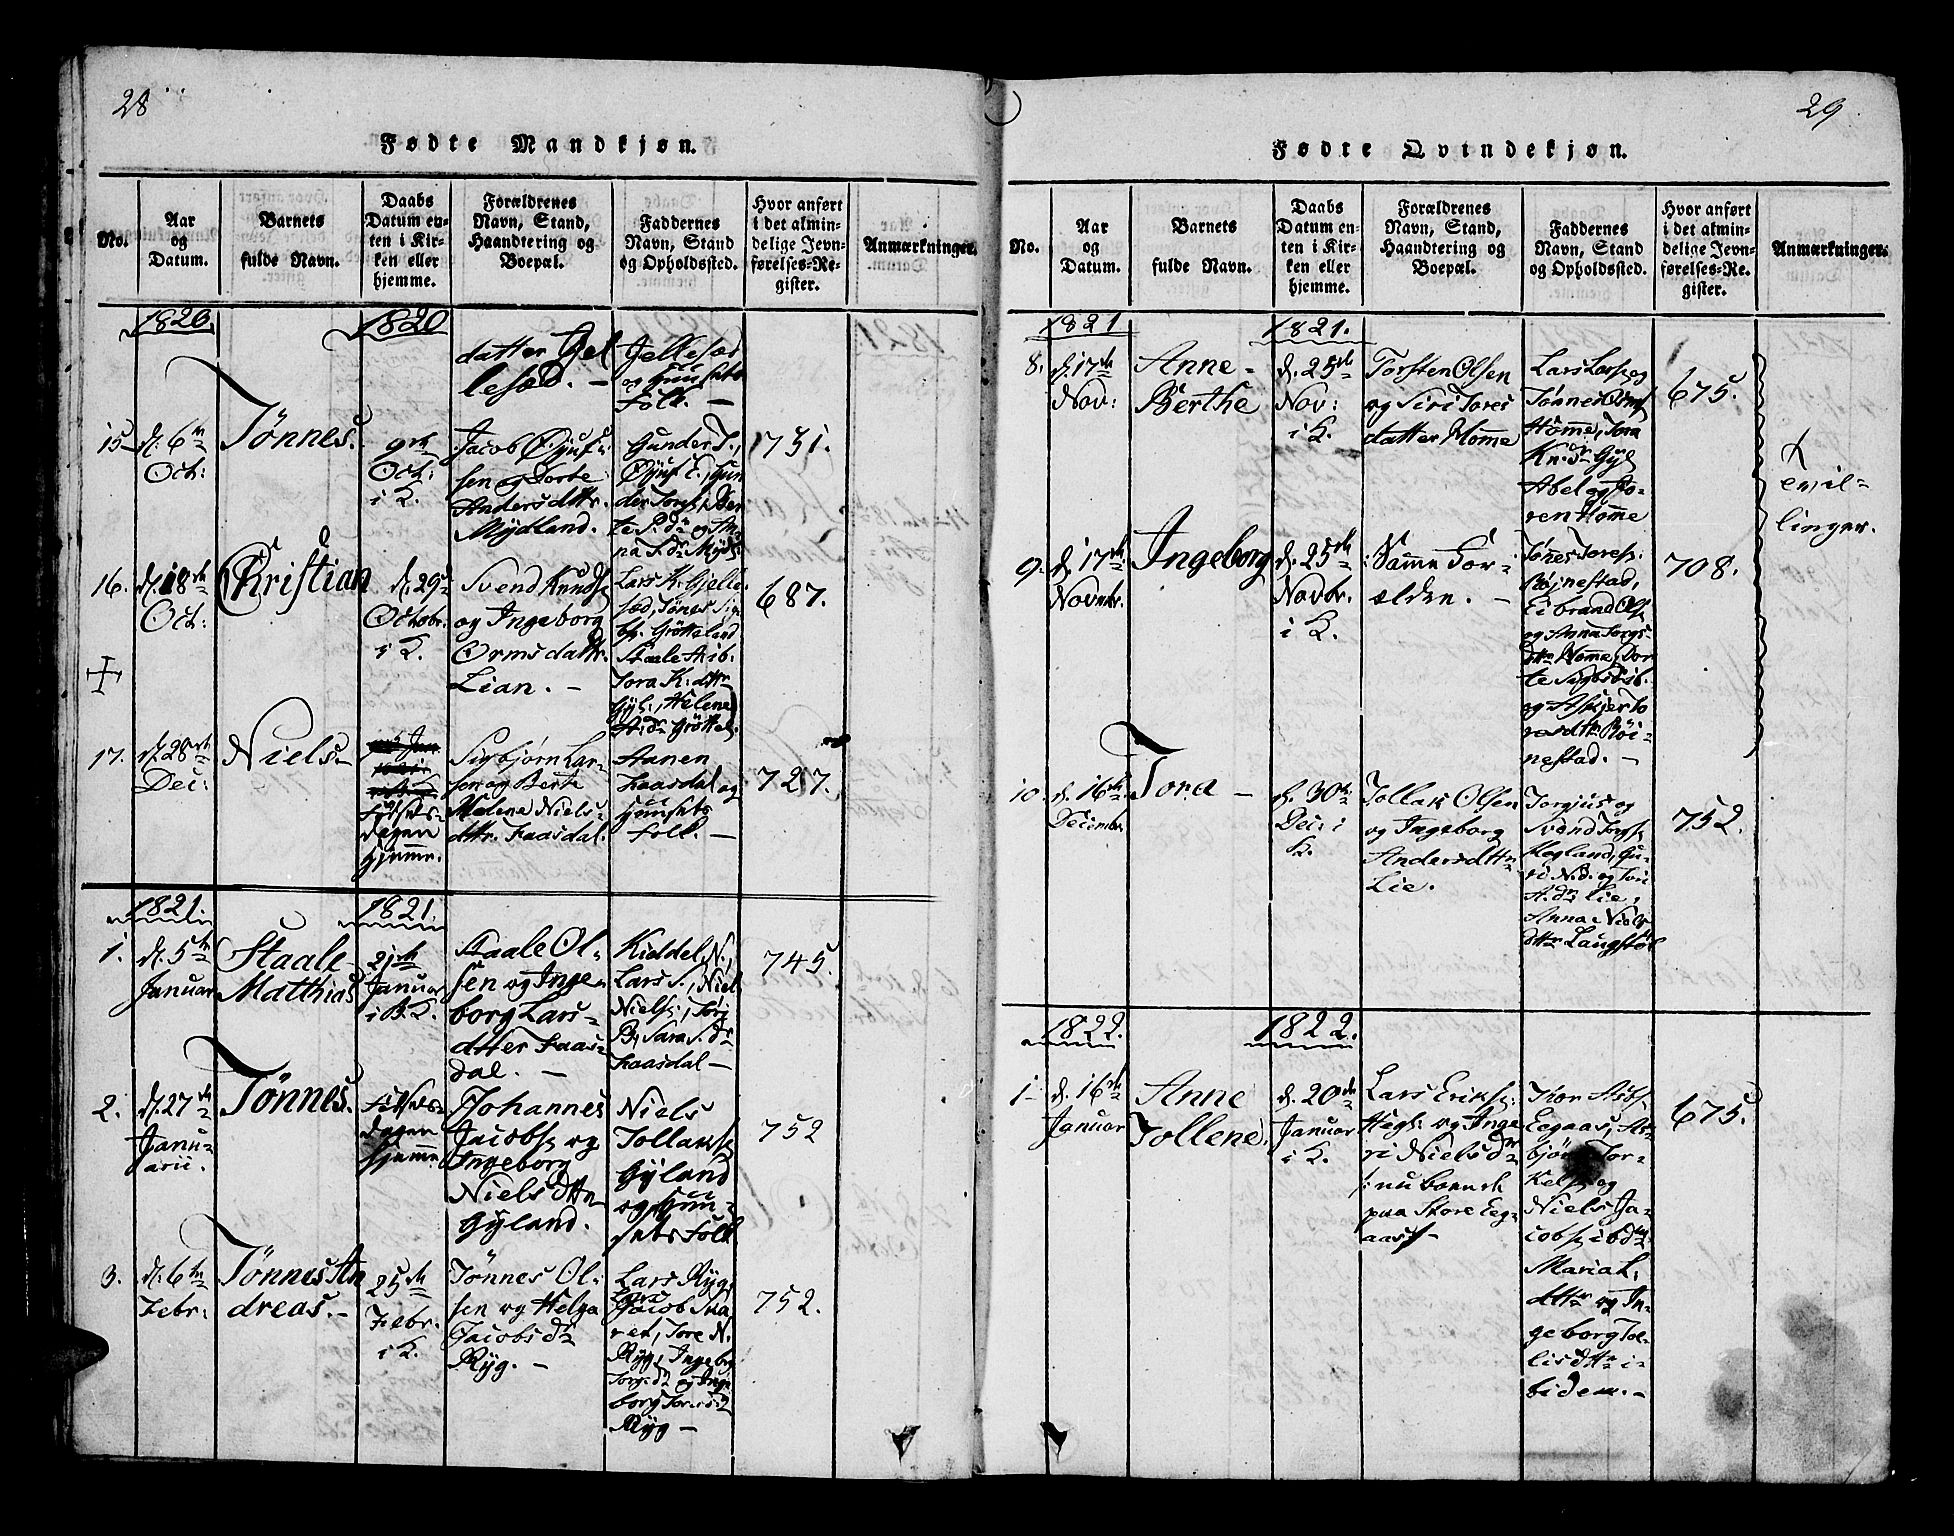 28
Fødte Mandkjøn.
No.
Aar
og
Datum.
Barnets
fulde Navn.
Daabs
Datum en-
ten i Kir-
ken eller
hjemme.
Forældrenes
Navn, Stand,
Haandtering og
Boepæl.
Faddernes
Navn, Stand
og Opholdssted.
Hvor anført
i det almin-
delige Jevn-
førelses-Re-
gister.
Anmærkninger.
1820.
1820
datter Gel
lesæd. —
Jellesæd
og Huusets
Folk. —
15
d. 6te
Oct:
Tønnes.
9de
Oct:
i K.
Jacob Øjuf-
sen og Dorte
Andersdttr.
Mydland.
Gunder T.,
Øjuf E., Gun
der Torgs, Ber
te P.dr og An
na P.dr Mydl.
731.
16.
d. 18de
Oct:
Christian
d. 29de
Octobr.
i K.
Svend Knuds.
og Ingeborg
Ormsdattr.
Lian. —
Lars K. Gjelle
sæd, Tønes Sig
bs. Grøtteland
Staale Asib.
Tora K: dttr
Gyl., Helene
A: dr Grøttel.
687.
17.
d. 28de
Dec:
Niels —
Fødsels-
dagen
hjemme.
Sigbjørn Lar-
sen og Berte
Helene Niels-
dttr. Faasdal.
Aanen
Faasdal og
Huusets
Folk. —
727.
1821.
1821.
1.
d. 5te
Januar
Staale
Matthias
21de
Januar
i B.K.
Staale Ol-
sen og Inge-
borg Lars-
dtter Faas-
dal. —
Kiddel N.,
Lars S., Niel
Niels:, Torj
B, Sara S. dr
Faasdal —
745.
2.
d. 27de
Janu-
arii.
Tønnes.
Fødsels-
dagen
hjemme.
Johannes
Jacobs. og
Ingeborg
Niels dttr
Gyland.
Niels
Tollaks.
Gyland
og Huu-
sets Folk
752
3.
d. 6te
Febr:
Tønnes An
dreas. —
25de
Febr.
i K.
Tønnes Ol-
sen og Helga
Jacobs dr
Ryg. —
Lars Ryg,
Jacob Sva
ret, Tore N.
Ryg, Ingebg
Torgs dr og Inge
borg Tores dr
Ryg —
752.
29
Fødte Qvindekjøn.
No.
Aar
og
Datum.
Barnets
fulde Navn.
Daabs
Datum en-
ten i Kir-
ken eller
hjemme.
Forældrenes
Navn, Stand,
Haandtering og
Boepæl.
Faddernes
Navn, Stand
og Opholdssted.
Hvor anført
i det almin-
delige Jevn-
førelses-Re-
gister.
Anmærkninger.
1821
1821.
8.
d. 17de
Nov:
Anne-
Berthe
d. 25de
Nov:
i K.
Torsten Olsen
og Siri Tores
datter Homme
Lars Lars. og
Tønnes Osmf
Homme, Tora
Kn: dr Gyl
Abel og To-
ren Homme
675.
tvil-
linger.
9.
d. 17de
Novnbr.
Ingeborg
d. 25de
Novbr.
i K.
Samme For-
ælden. —
Tønes Tores.
Røjnestad,
Eibrand Ols.
og Anna Torgs-
dttr Homme, Dor
te Sigbs ib.
og Askjer To
res dttr Røi-
nestad. —
708.
10.
d. 16de
Decembr.
Tora —
d. 30te
Dec: i
K.
Tollak Olsen
og Ingeborg
Andersdttr
Lie.
Torgjus og
Svend Torgs.
Hegland, Gu-
ri N.d. og Tori
A. dr Lie,
Anna Niels
dttr Laugstøl
752.
1822.
1822.
1
d. 16de
Januar
Anne
Tollene.
d. 20de
Januar
i K.
Lars Eriks:
Hegl. og Inge
ri Niels dr
/: nu boende
paa Store Eeg-
aas :/ —
Thor Asbs.
Eegaas, As-
bjørn Tor-
kels. og
Niels Ja-
cobs. ibdm
Maria L.
dttr og In-
geborg Tol-
lisdttr i-
bidem. —
675.